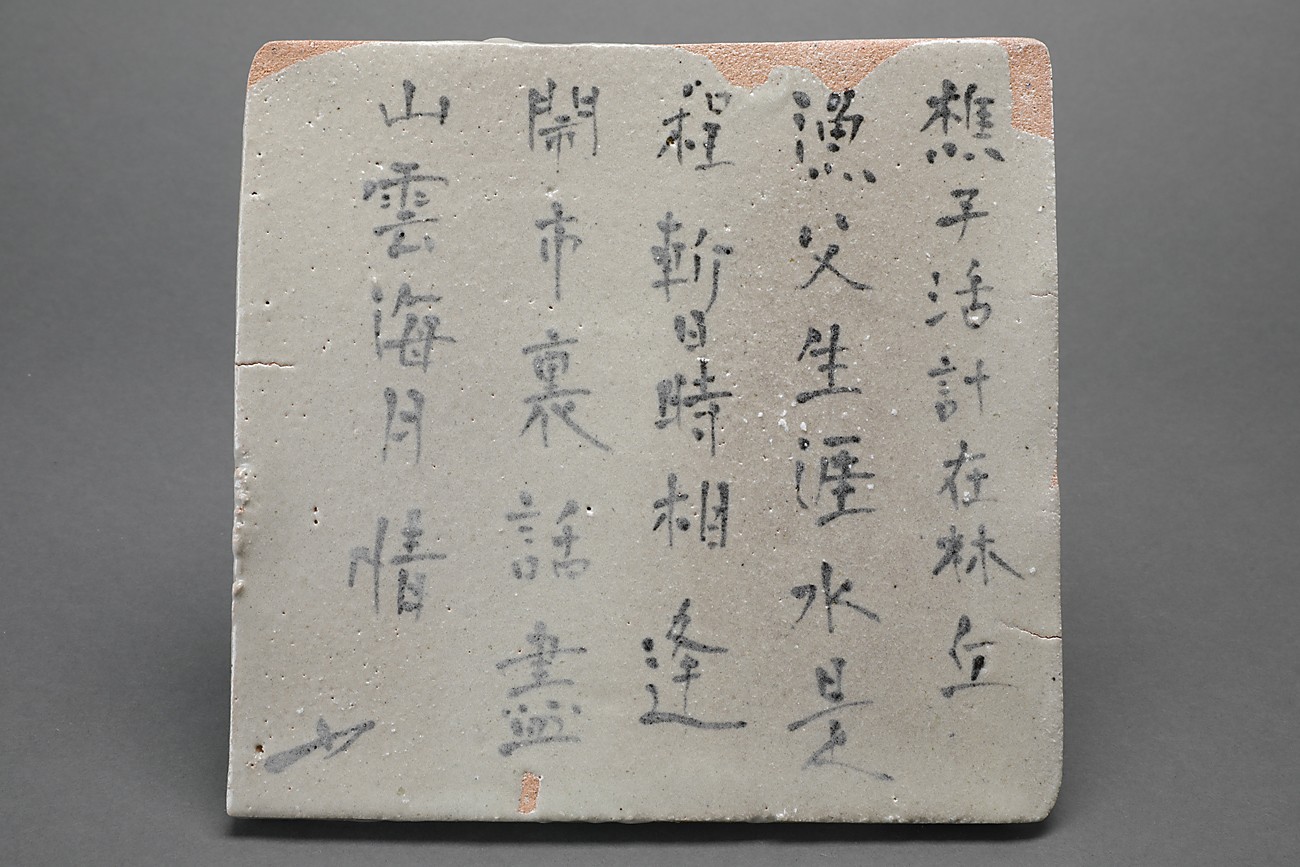 樵子活計在林丘
漁父生涯水是
程斬日時相逢
閙市裏話盡
山雲海月情